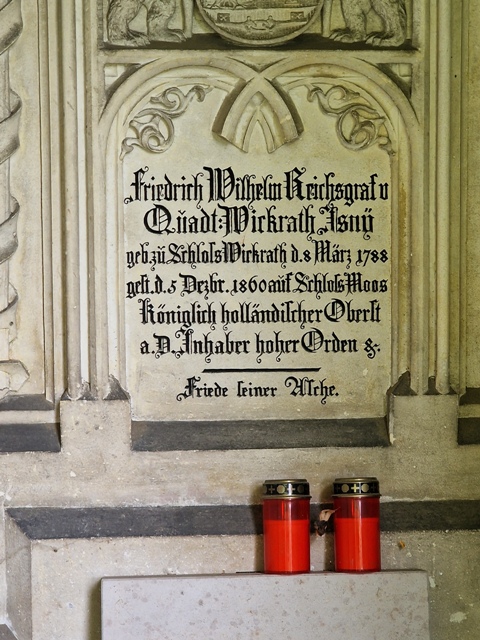 Friedrich Wilhelm Reichsgraf v
Quadt-Wickrath Isnÿ
geb. zu Schloſs Wickrath d. 8 März 1788
geſt. d. 5 Dezbr. 1860 auf Schloſs Moos
Königlich holländiſcher Oberſt
a. D. Inhaber hoher Orden &.
Friede ſeiner Aſche.